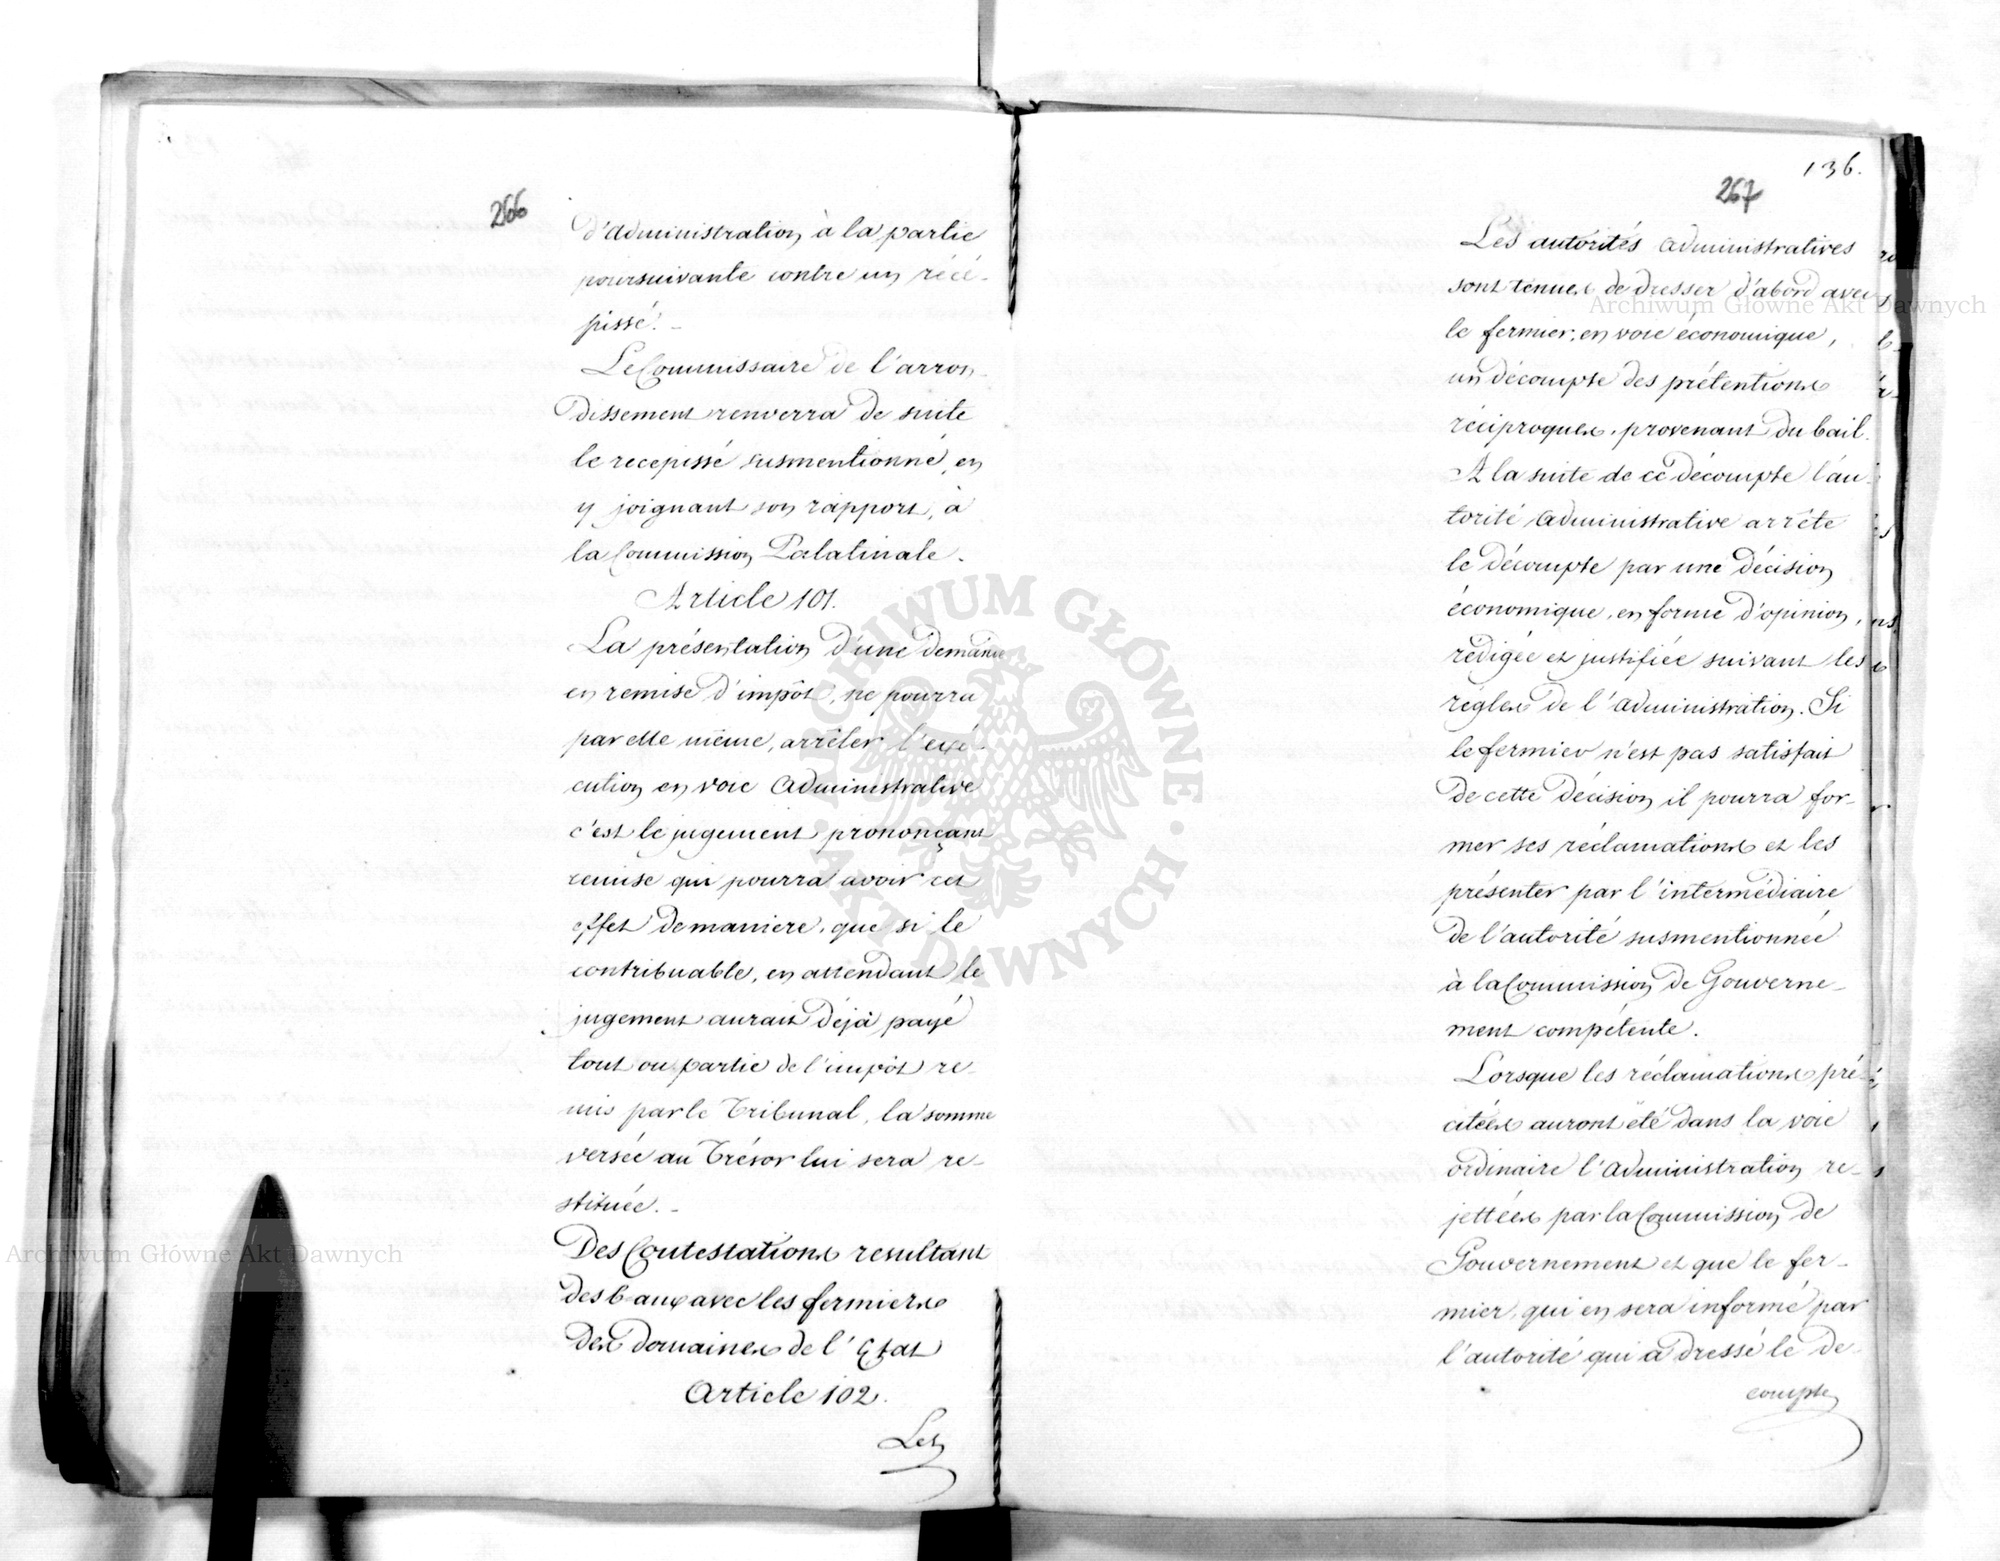 266
d'administration à la partie
poursuivante contre un récé-
pissé. -
Le Commissaire de l'arron-
dissement renverra de suite
le recepissé susmentionné, en
y joignant son rapport, à
la Commission Palatinale.
Article 101.
La présentation d'une demande
en remise d'impôt, ne pourra
par elle même, arrêter l'exé-
cution en voie administrative
c'est le jugement prononçant
remise qui pourra avoir cet
effet de maniere, que si le
contribuable, en attendant le
jugement aurait déjà payé
tout ou partie de l'impôt re-
mis par le Tribunal, la somme
versée au Trésor lui sera re-
stituée. -
Des Contestations resultant
des baux avec les fermiers
des domaines de l'Etat
Article 102.
Les
136.
267
Les autorités administratives
sont tenues de dresser d'abord avec
le fermier, en voie économique,
un décompte des prétentions
réciproques, provenant du bail.
A la suite de ce décompte l'au-
torité administrative arrête
le décompte par une décision
économique, en forme d'opinion,
rédigée et justifiée suivant les
règles de l'administration. Si
le fermier n'est pas satisfait
de cette décision il pourra for-
mer ses réclamations et les
présenter par l'intermédiaire
de l'autorité susmentionnée
à la Commission de Gouverne-
ment compétente.
Lorsque les réclamations pré-
citées auront été dans la voie
ordinaire l'administration re-
jettées par la Commission de
Gouvernement et que le fer-
mier, qui en sera informé par
l'autorité qui a dressé le dé-
compte
Archiwum Główne Akt Dawnych
Archiwum Główne Akt Dawnych
ARCHIWUM GŁÓWNE · AKT DAWNYCH ·